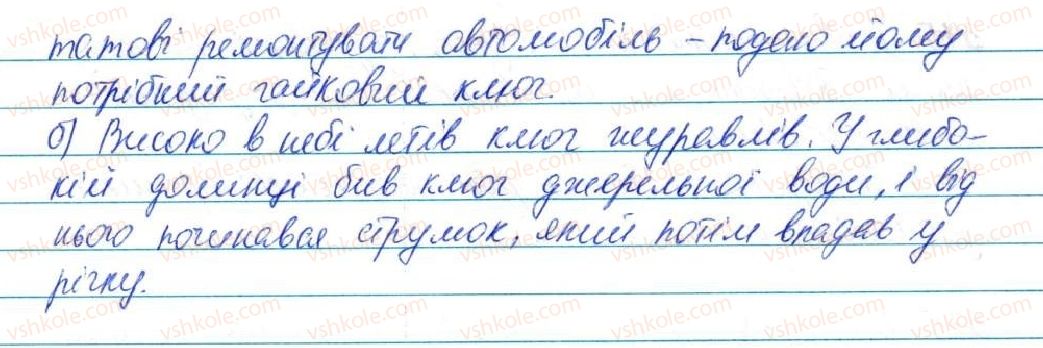 татові ремонтувати автомобіль – подаю йому
потрібний гайковий ключ.
б) Високо в небі летів ключ журавлів. У глибо-
кій долинці бив ключ джерельної води, і від
нього починався струмок, який потім впадав у
річку.